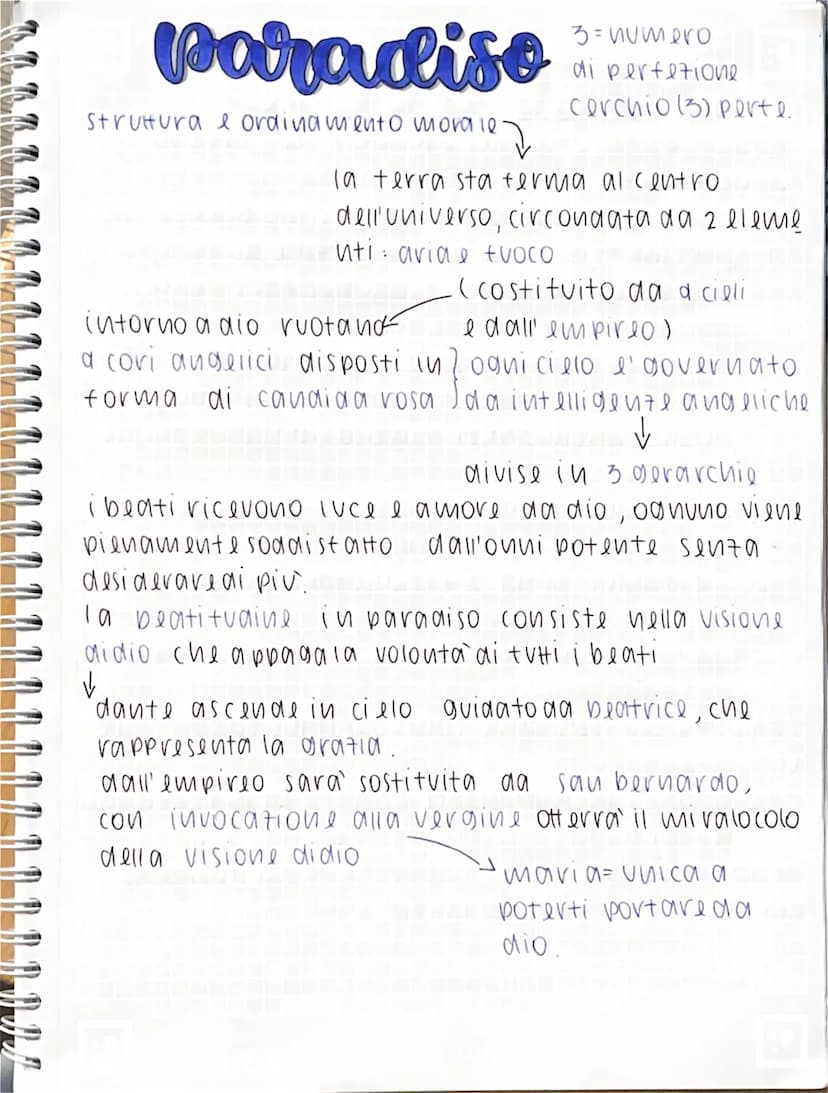 paradiso
3 = numero
di perfezione
cerchio (3) perfe.
struttura e ordinamento morale
la terra sta ferma al centro
dell'universo, circondata da 2 eleme
nti: aria e fuoco
(costituito da 9 cieli
e dall'empireo)
intorno a dio ruotano
9 cori angelici disposti in
forma di candida rosa
ogni cielo e' governato
da intelligenze angeliche
divise in 3 gerarchie
i beati ricevono luce e amore da dio, ognuno viene
pienamente soddisfatto dall'onnipotente senza
desiderare di più.
la beatitudine in paradiso consiste nella visione
di dio che appaga la volontà di tutti i beati
dante ascende in cielo guidato da beatrice, che
rappresenta la grazia.
dall'empireo sarà sostituita da san bernardo,
con invocazione alla vergine otterrà il miralocolo
della visione di dio
maria = unica a
poterti portare da
dio.